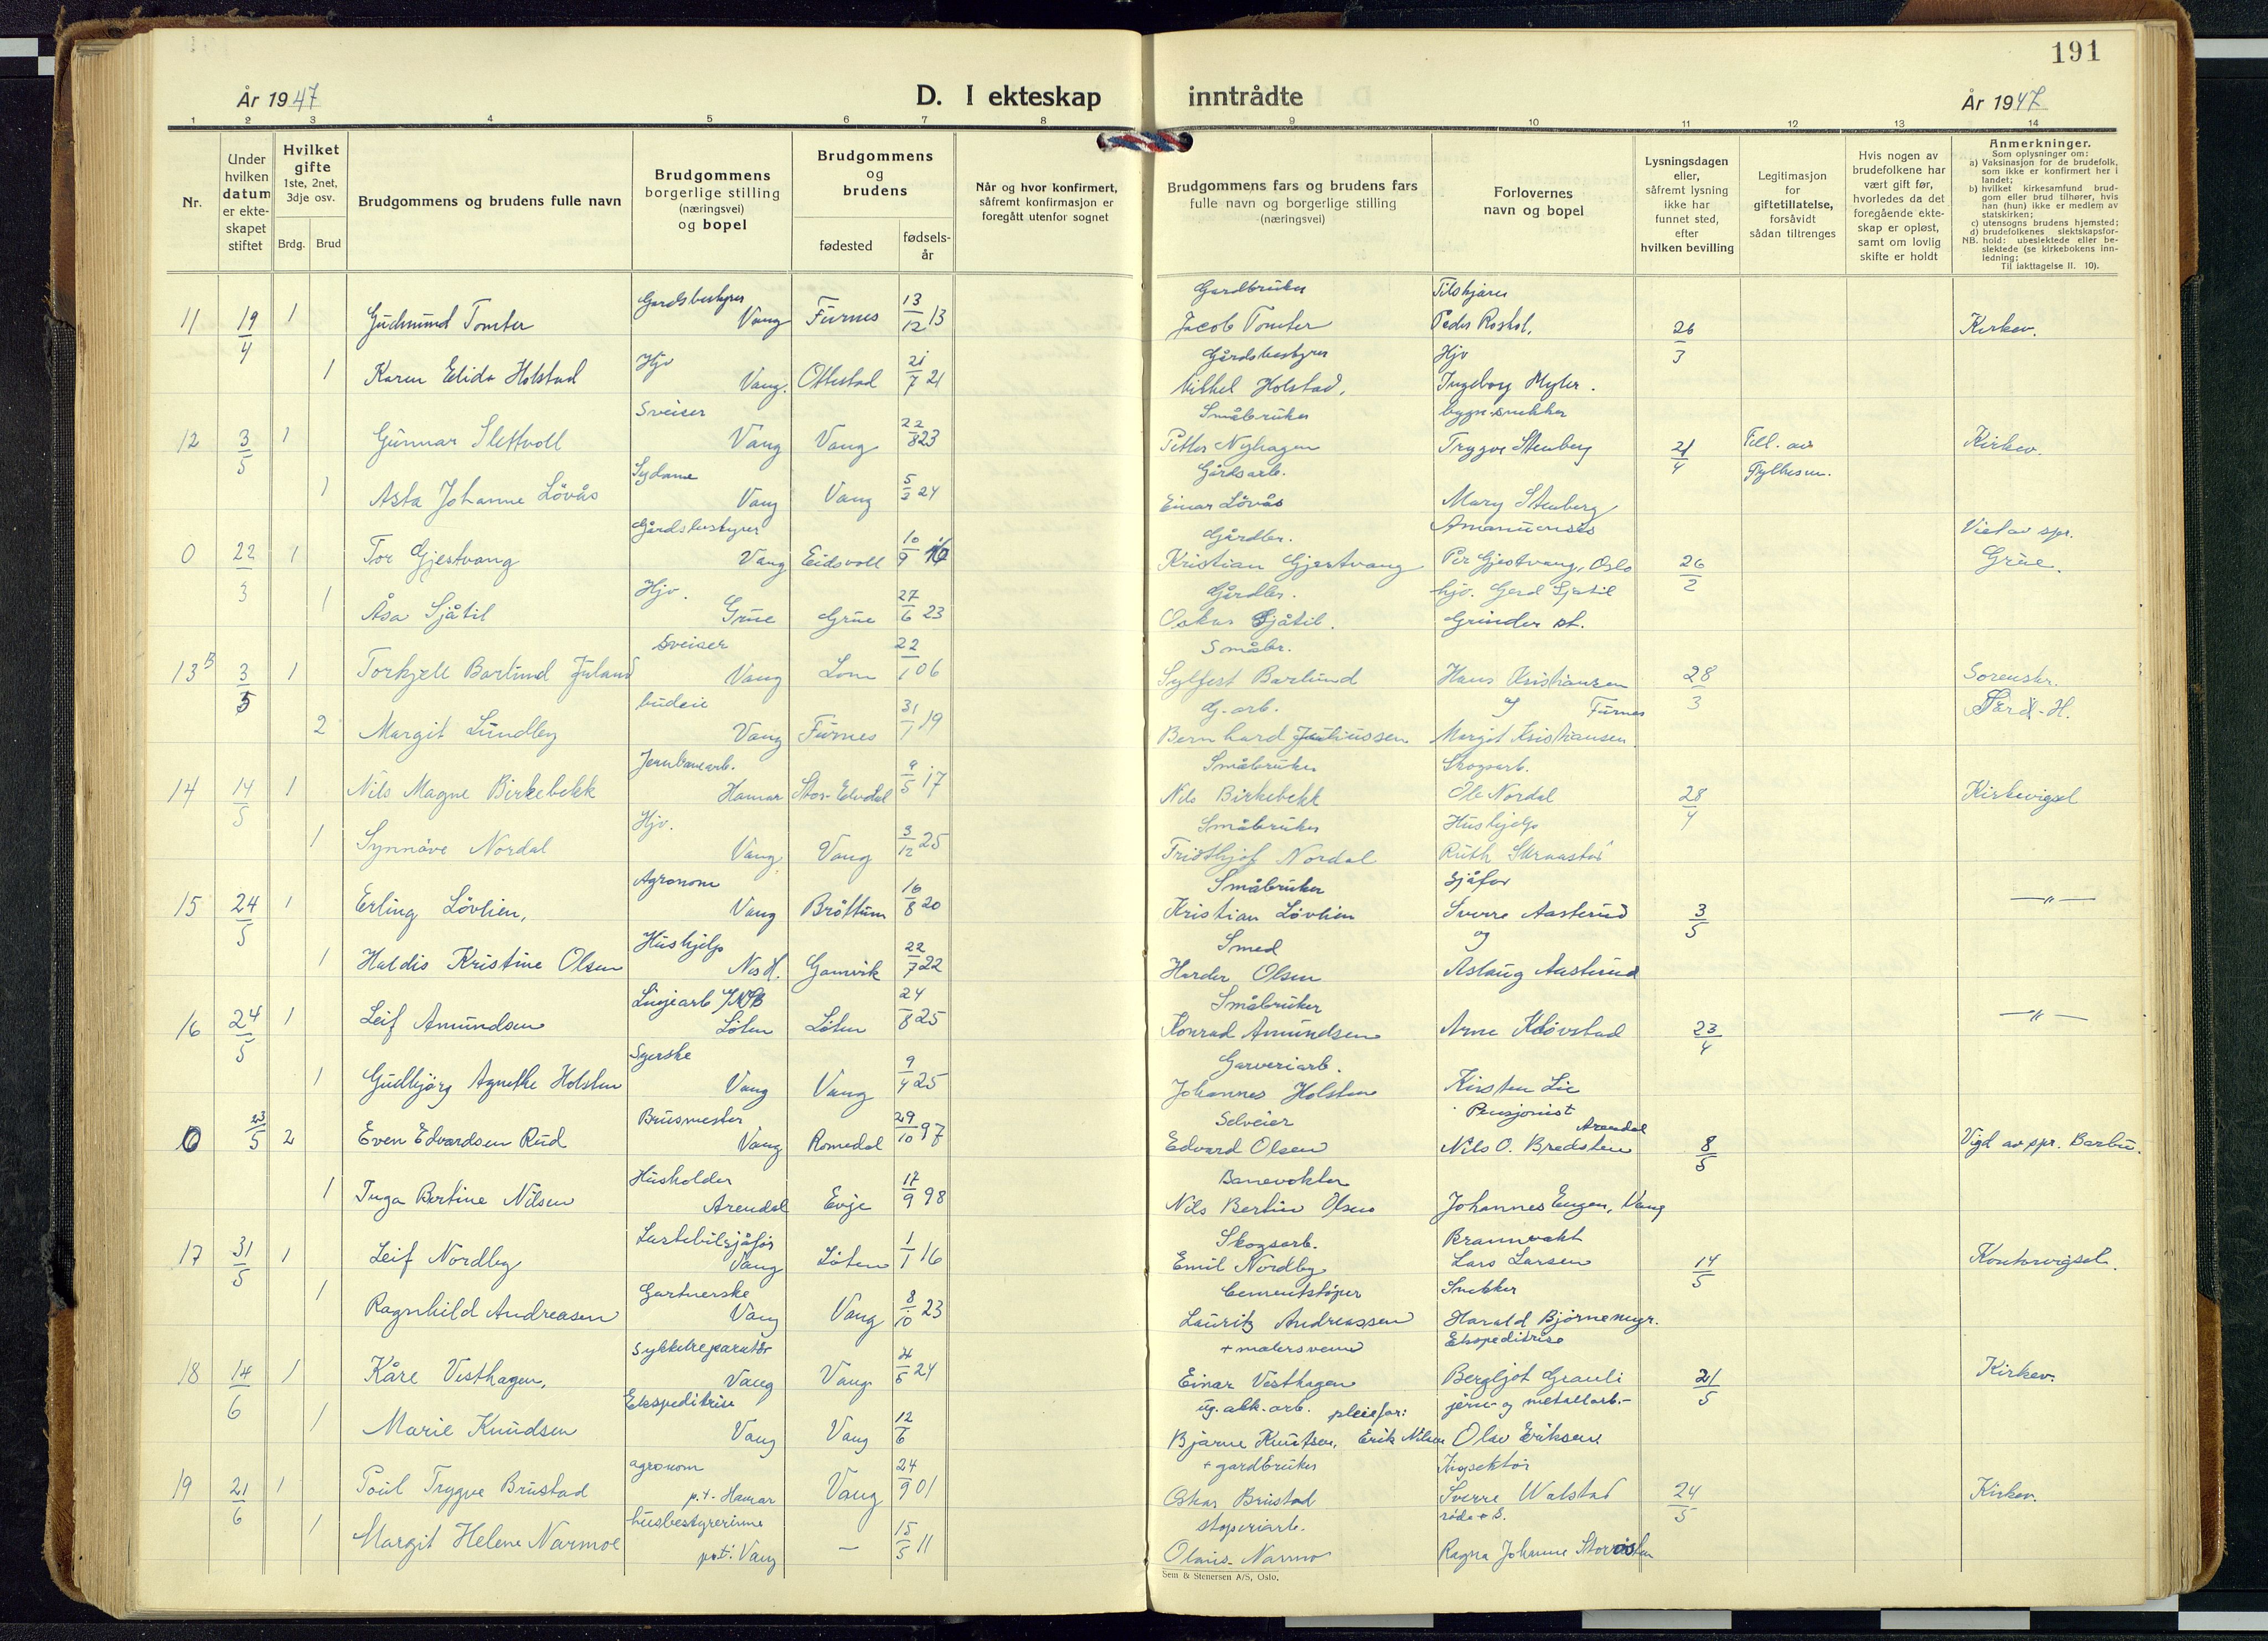 191
År 1947
D. I ekteskap inntrådte
År 1947
1 2 3 4 5 6 7 8 9 10 11 12 13 14
Nr.
Under hvilken datum er ekteskapet stiftet
Hvilket gifte 1ste, 2net, 3dje osv.
Brdg. Brud
Brudgommens og brudens fulle navn
Brudgommens borgerlige stilling (næringsvei) og bopel
Brudgommens og brudens
fødested
fødselsår
Når og hvor konfirmert, såfremt konfirmasjon er foregått utenfor sognet
Brudgommens fars og brudens fars fulle navn og borgerlige stilling (næringsvei)
Forlovernes navn og bopel
Lysningsdagen eller, såfremt lysning ikke har funnet sted, efter hvilken bevilling
Legitimasjon for giftetillatelse, forsåvidt sådan tiltrenges
Hvis nogen av brudefolkene har vært gift før, hvorledes da det foregående ekteskap er opløst, samt om lovlig skifte er holdt
Anmerkninger.
Som oplysninger om:
a) Vaksinasjon for de brudefolk, som ikke er konfirmert her i landet;
b) hvilket kirkesamfund brudgom eller brud tilhører, hvis han (hun) ikke er medlem av statskirken;
c) utensogns brudens hjemsted;
d) brudefolkenes slektskapsforhold: ubeslektede eller beslektede (se kirkebokens innledning;
NB. Til iakttagelse II. 10).
Gardsbestyrer Gardbruker
11 19/4 1 Gudmund Tomter Vang Furnes 13/12 13 Jacob Tomter Peder 26/3 Kirkev.
Hjv Gårdsbestyrer Hjv
1 Karen Elida Holstad Vang. Ottestad 21/7 21 Mikkel Holstad, Ingeborg Myhr.
Sveiser Småbruker bygn.snekker
12 3/5 1 Gunnar Slettvoll Vang Vang 22/8 23 Petter Nyhagen Trygve Stenberg 21/4 Till. av Fylkesm. Kirkev.
Sydame Gårdsarb.
1 Asta Johanne Lövås Vang Vang 5/2 24 Einar Lövås Mary Stenberg
Gårdsbestyrer Gårdbr. Amanuensis Viet av spr.
0 22/3 1 Tor Gjestvang Vang Eidsvoll 10/9 16 Kristian Gjestvang Per Gjestvang, Oslo 26/2 Grue.
Hjv. Gårdbr. hjv. Gerd Sjåtil
1 Åsa Sjåtil Grue Grue 27/6 23 Oskar Sjåtil. Grinder st.
Sveiser Småbr.
13B 3/5 1 Torkjell Barlund Juland Vang Lom 22/1 06 Sylfest Barlund Hans Kristiansen 28/3 Sorenskr.
budeie G.arb. og Furnes
2 Margit Lundby Vang Furnes 31/1 19 Bernhard Juliussen Margit Kristiansen.
Jernbanearb. Småbruker Skogsarb.
14 14/5 1 Nils Magne Birkebekk Hamar Stor-Elvdal 9/5 17 Nils Birkebekk Ole Nordal 28/4 Kirkevigsel
Hjv. Småbruker Hushjelp
1 Synnöve Nordal Vang Vang 3/12 25 Fridthjof Nordal Ruth
Agronom Småbruker Sjåfør
15 24/5 1 Erling Lövlien, Vang Bröttum 16/8 20 Kristian Lövlien Sverre Aasterud 3/5 —"—
Hushjelp Smed og
1 Haldis Kristine Olsen Nes H. Gamvik 22/7 22 Harder Olsen Aslaug Aasterud
Linjearb NSB Småbruker
16 24/5 1 Leif Amundsen Löten Löten 24/8 25 Konrad Amundsen Arne Klövstad 23/4 —"—
Syerske Garveriarb.
1 Gudbjörg Agnethe Holsten Vang Vang 9/4 25 Johannes Holsten Kirsten Lie
Brusmester Selveier Pensjonist Arendal
0 23/5 2 Even Edvardsen Rud Vang Romedal 29/10 97 Edvard Olsen Nils O. Bredsten 8/5 Vigd av spr. Barbu.
Husholder Banevokter
1 Inga Bertine Nilsen Arendal Evje 17/9 98 Nils Bertin Olsen Johannes Engen, Vang
Lastebilsjåför Skogsarb. Brannvakt
17 31/5 1 Leif Nordby Vang Löten 1/1 16 Emil Nordby Lars Larsen 14/5 Kontorvigsel.
Gartnerske Cementstöper Snekker
1 Ragnhild Andreasen Vang Vang 8/10 23 Lauritz Andreassen Harald Björnemyr.
Sykkelreparatör + malersvenn Ekspeditrise
18 14/6 1 Kåre Vesthagen, Vang Vang 4/5 24 Einar Vesthagen Bergljot Granli 21/5 Kirkev.
Ekspeditrise ug. abk. arb. pleiefar: jern- og metallarb.-
1 Marie Knudsen Vang Vang 12/6 Bjarne Knutsen, Erik Nilsen Olav Eriksen
agronom + gardbruker Inspektör
19 21/6 1 Poul Trygve Brustad p.t. Hamar Vang 24/9 01 Oskar Brustad Sverre Walstad 24/5 Kirkev.
husbestyrerinne stoperiarb.
1 Margit Helene Narmoe p.t. Vang — 15/5 11 Olaus Narmo Ragna Johanne
Sem & Stenersen A/S, Oslo.